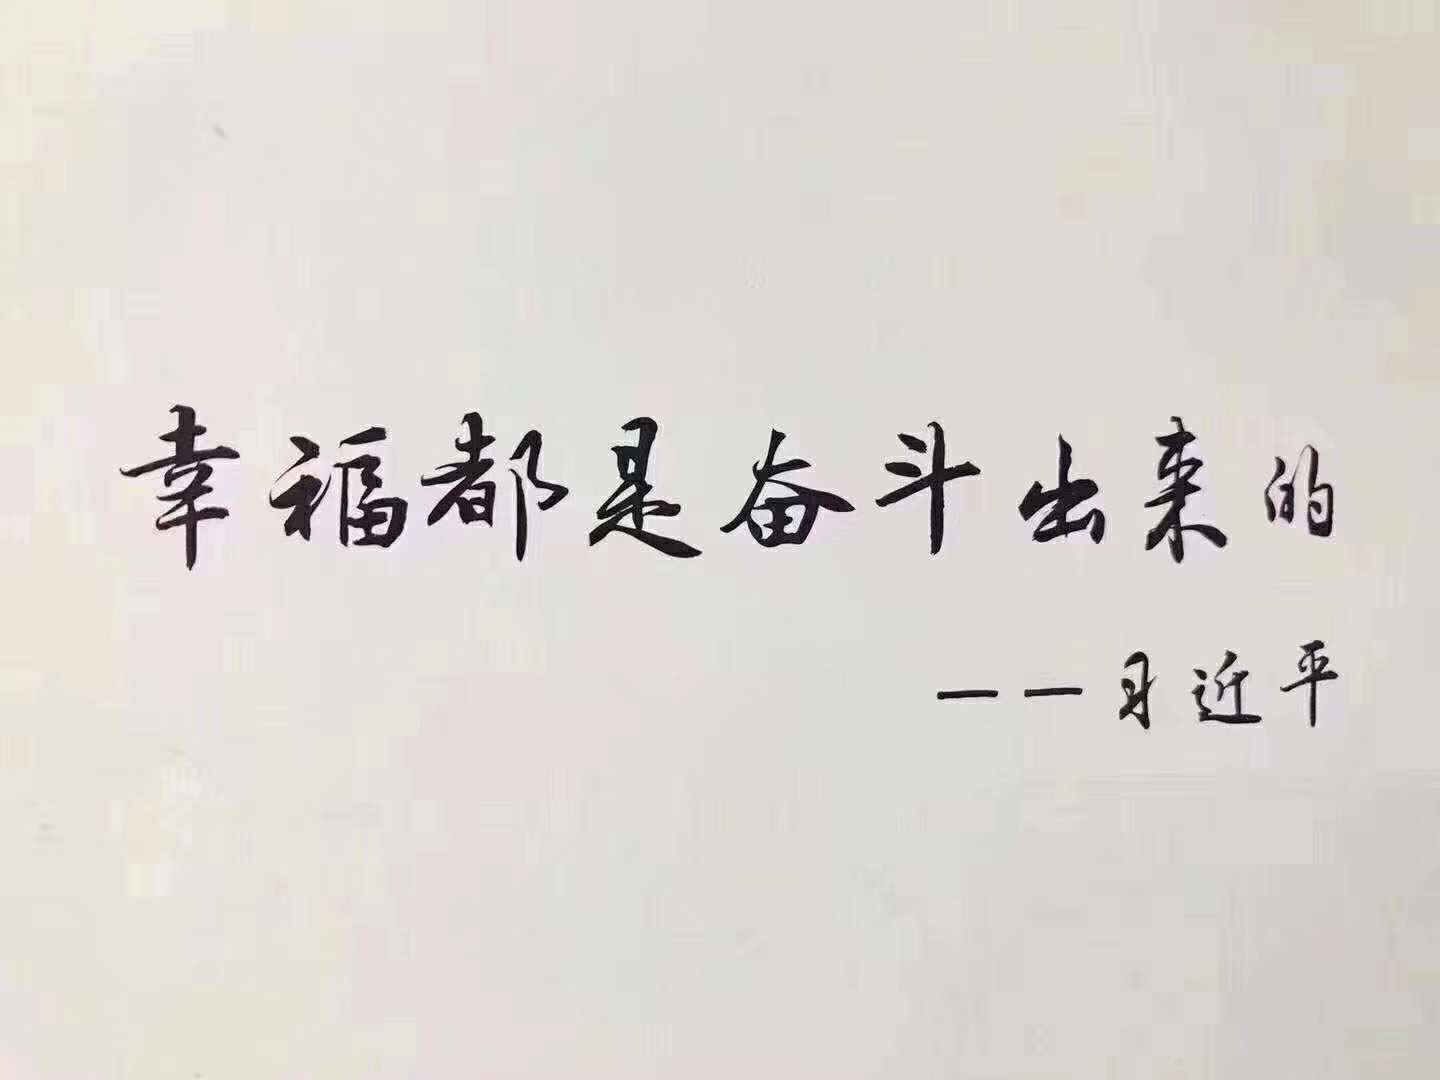 幸福都是奋斗出来的
——习近平